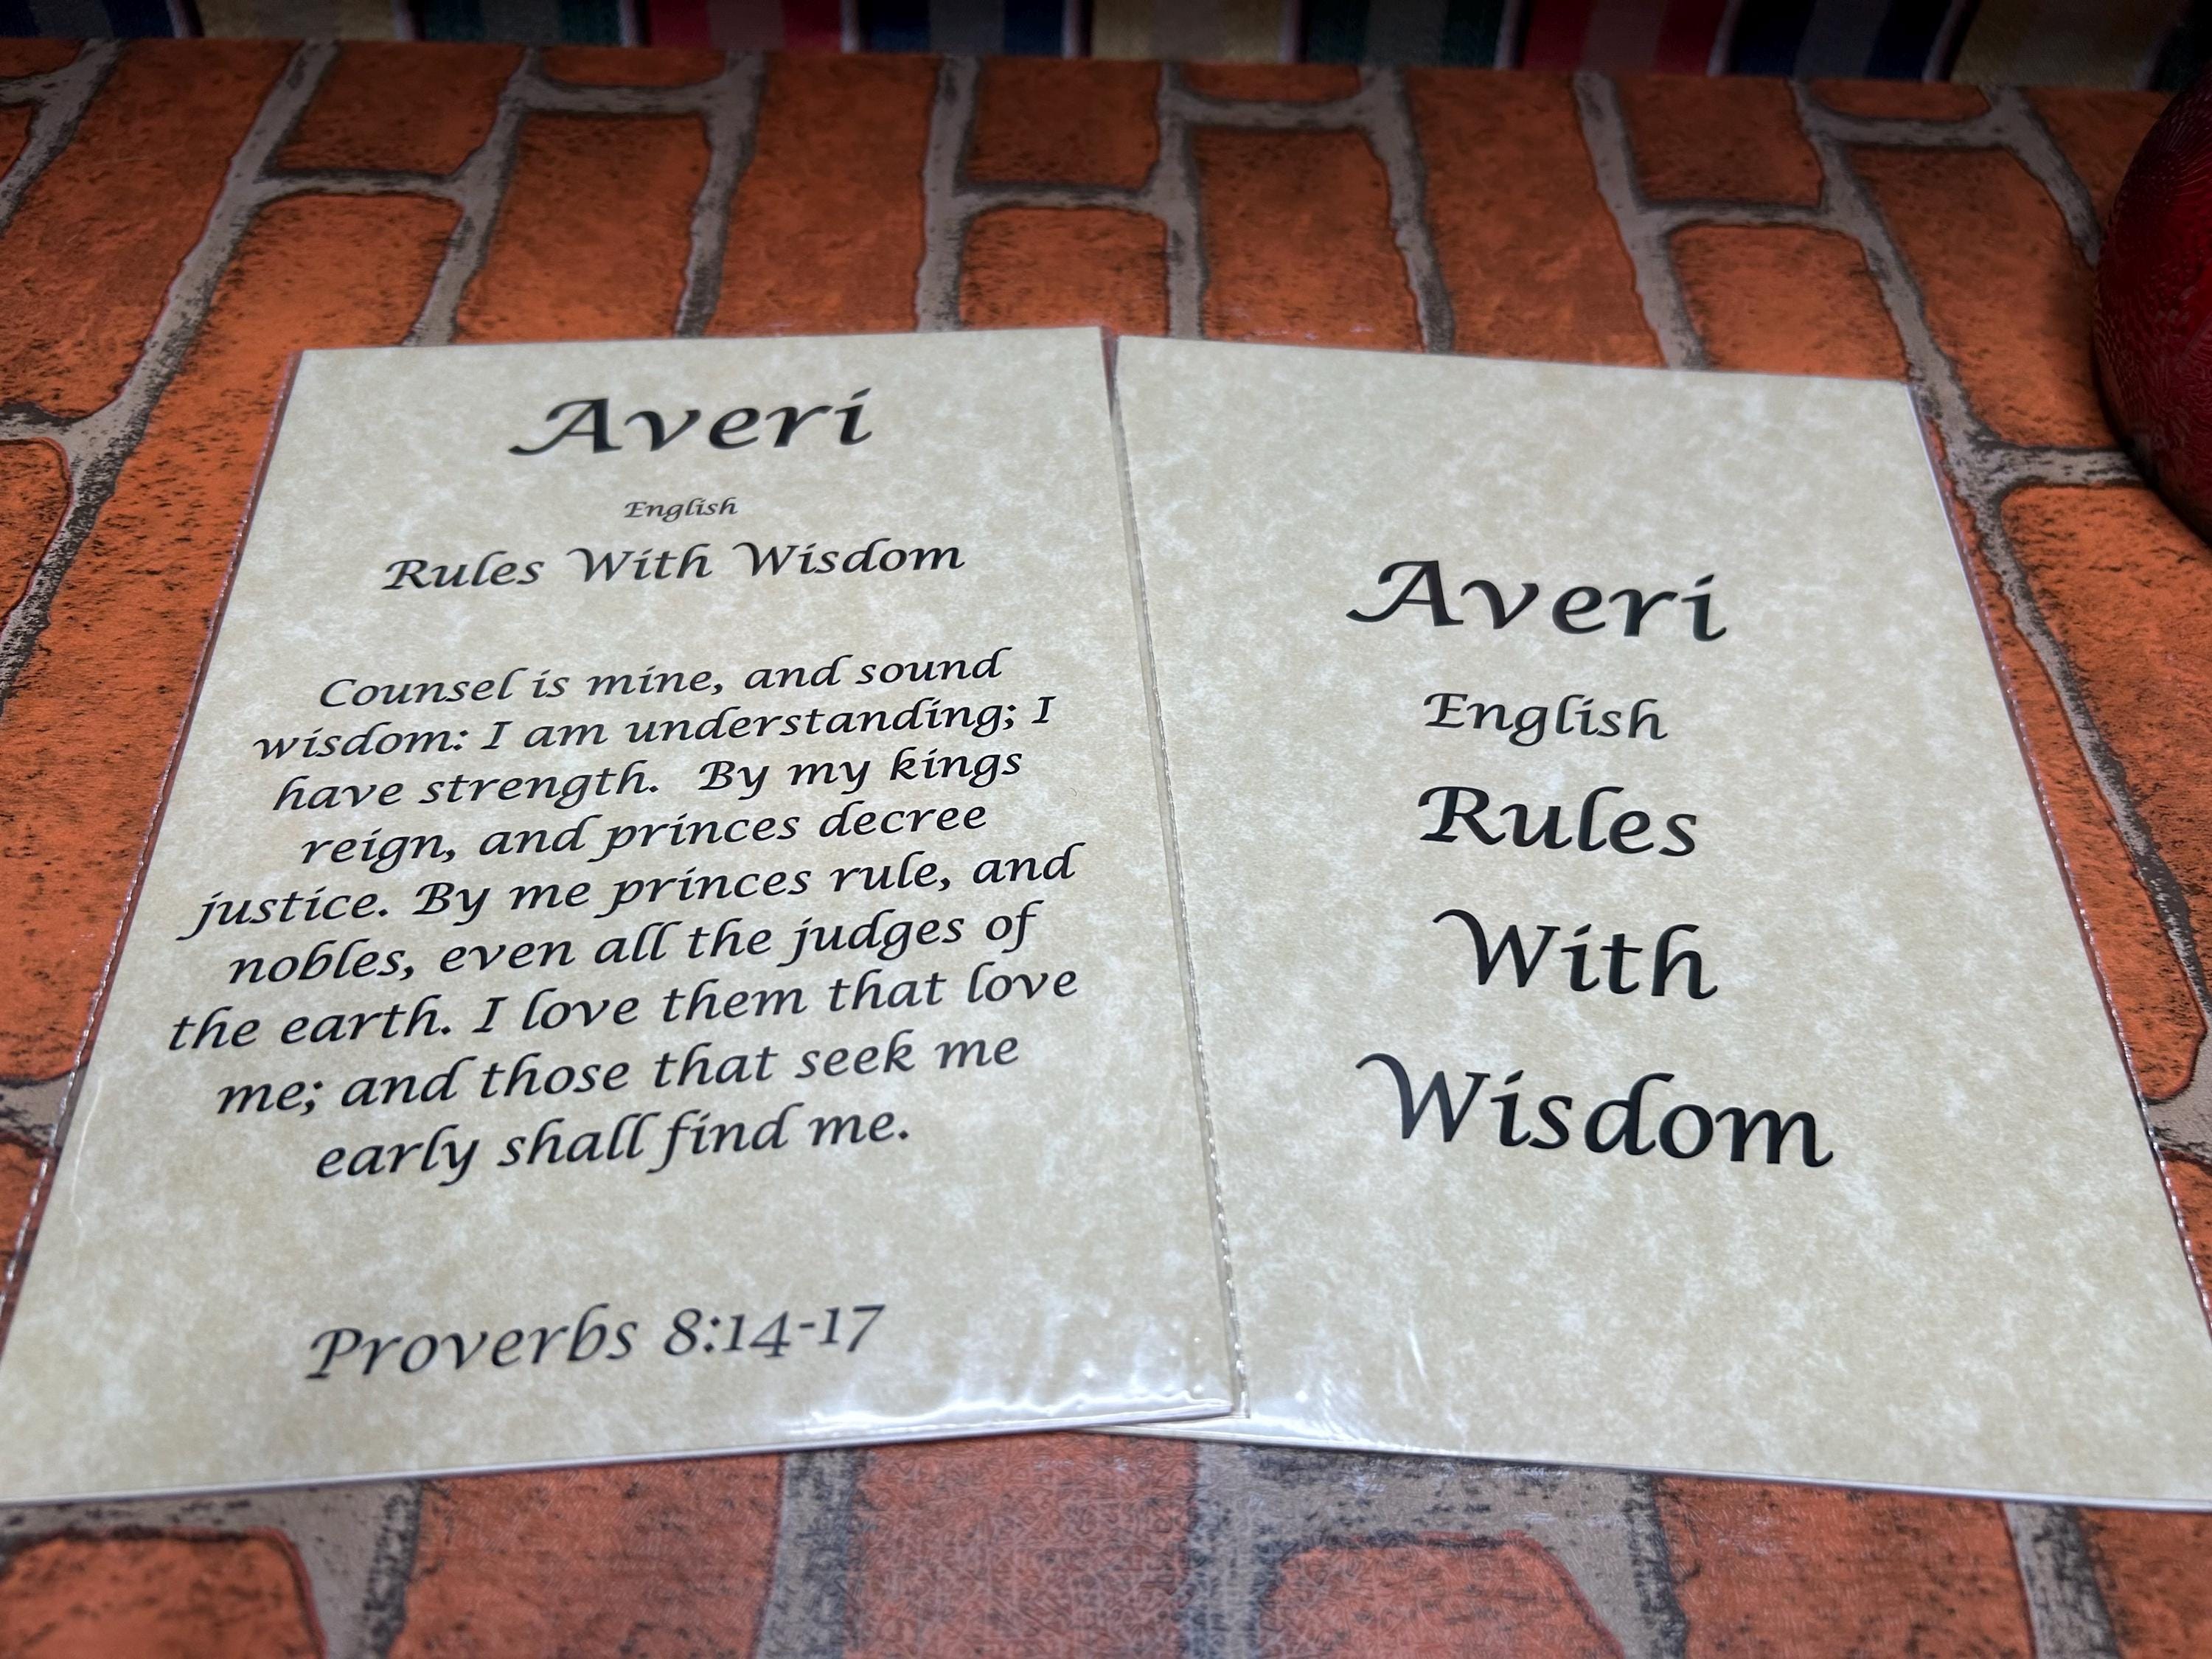 Averi
English
Rules With Wisdom
Counsel is mine, and sound
wisdom: I am understanding; I
have strength.  By my kings
reign, and princes decree
justice. By me princes rule, and
nobles, even all the judges of
the earth. I love them that love
me; and those that seek me
early shall find me.
Proverbs 8:14-17
Averi
English
Rules
With
Wisdom